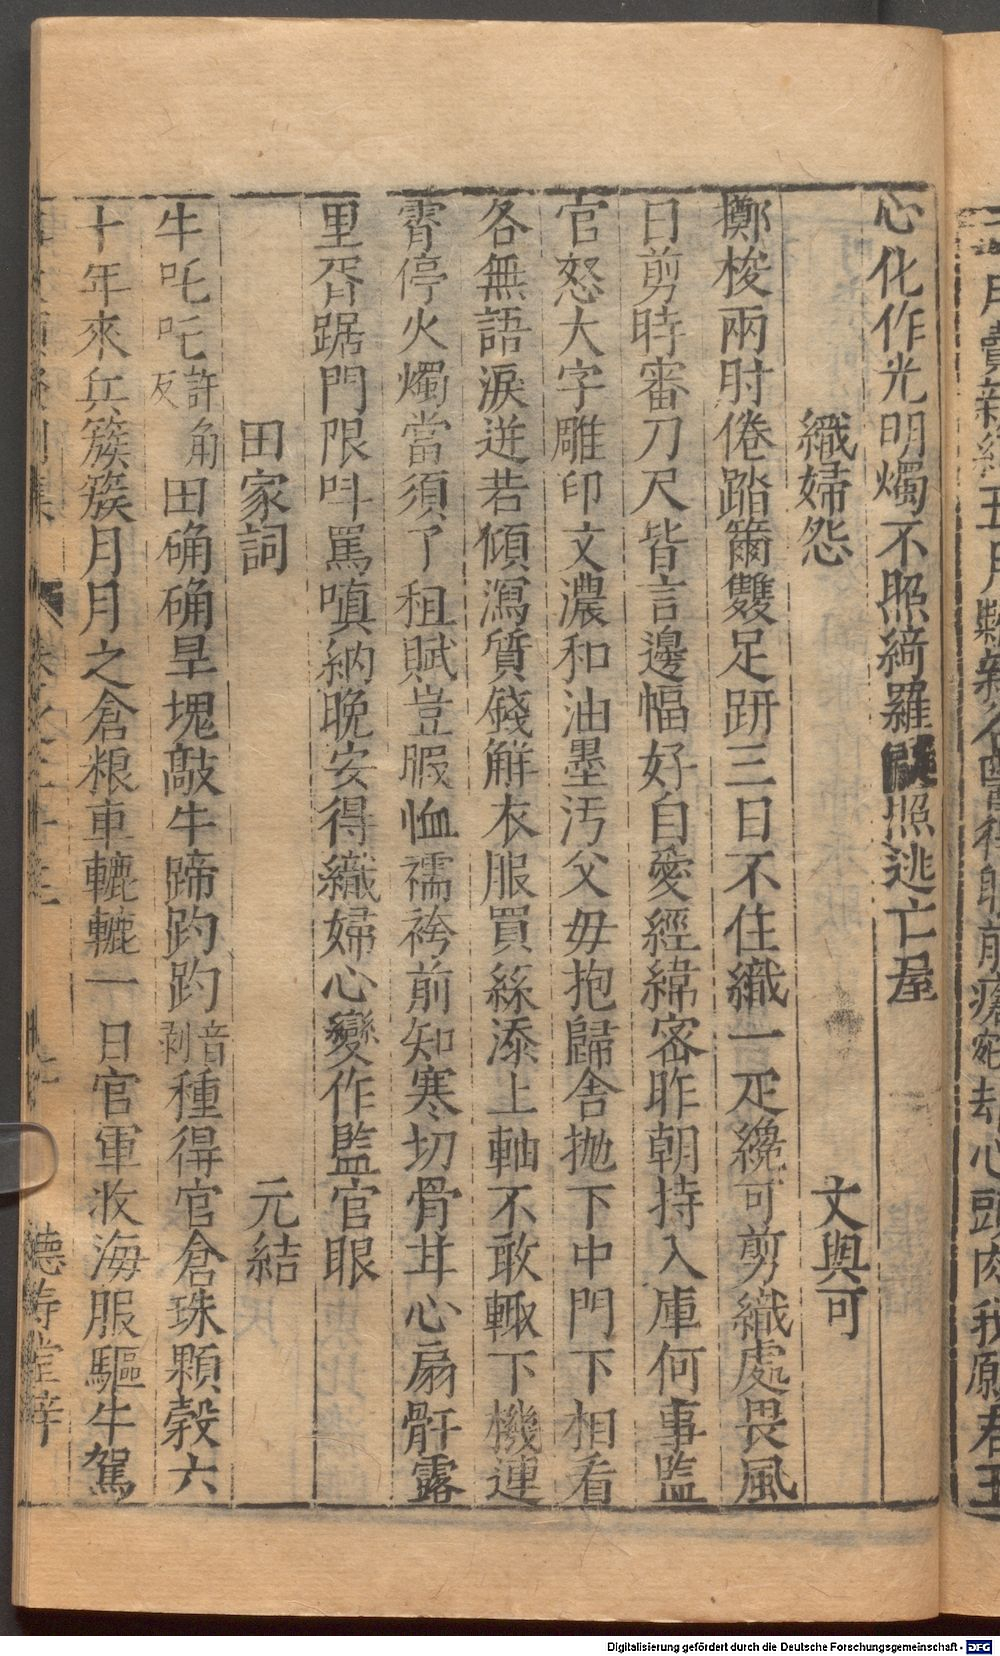 心化作光明燭不照綺羅筵照逃亡屋
織婦怨　文與可
擲梭兩肘倦踏籋雙足趼三日不住織一疋纔可剪織處畏風
日剪時審刀尺皆言邊幅好自愛經緯密昨朝持入庫何事監
官怒大字雕印文濃和油墨污父毋抱歸舍拋下中門下相看
各無語淚迸若傾瀉質錢解衣服買絲添上軸不敢輒下機連
霄停火燭當須了租賦豈暇恤襦袴前知寒切骨甘心扇骭露
里胥踞門限呌罵嗔納晚安得織婦心變作監官眼
田家詞　元結
牛吒吒許角反田确确旱塊敲牛蹄趵趵音剥種得官倉珠顆榖六
十年來兵簇簇月月之倉粮車轆轆一日官軍收海服驅牛駕
德壽堂梓
Digitalisierung gefördert durch die Deutsche Forschungsgemeinschaft - DFG